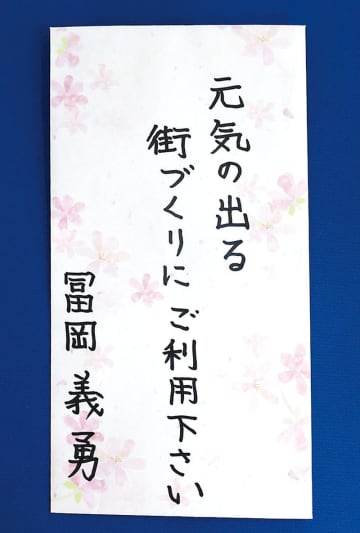 元気の出る
街づくりにご利用下さい
冨岡義勇